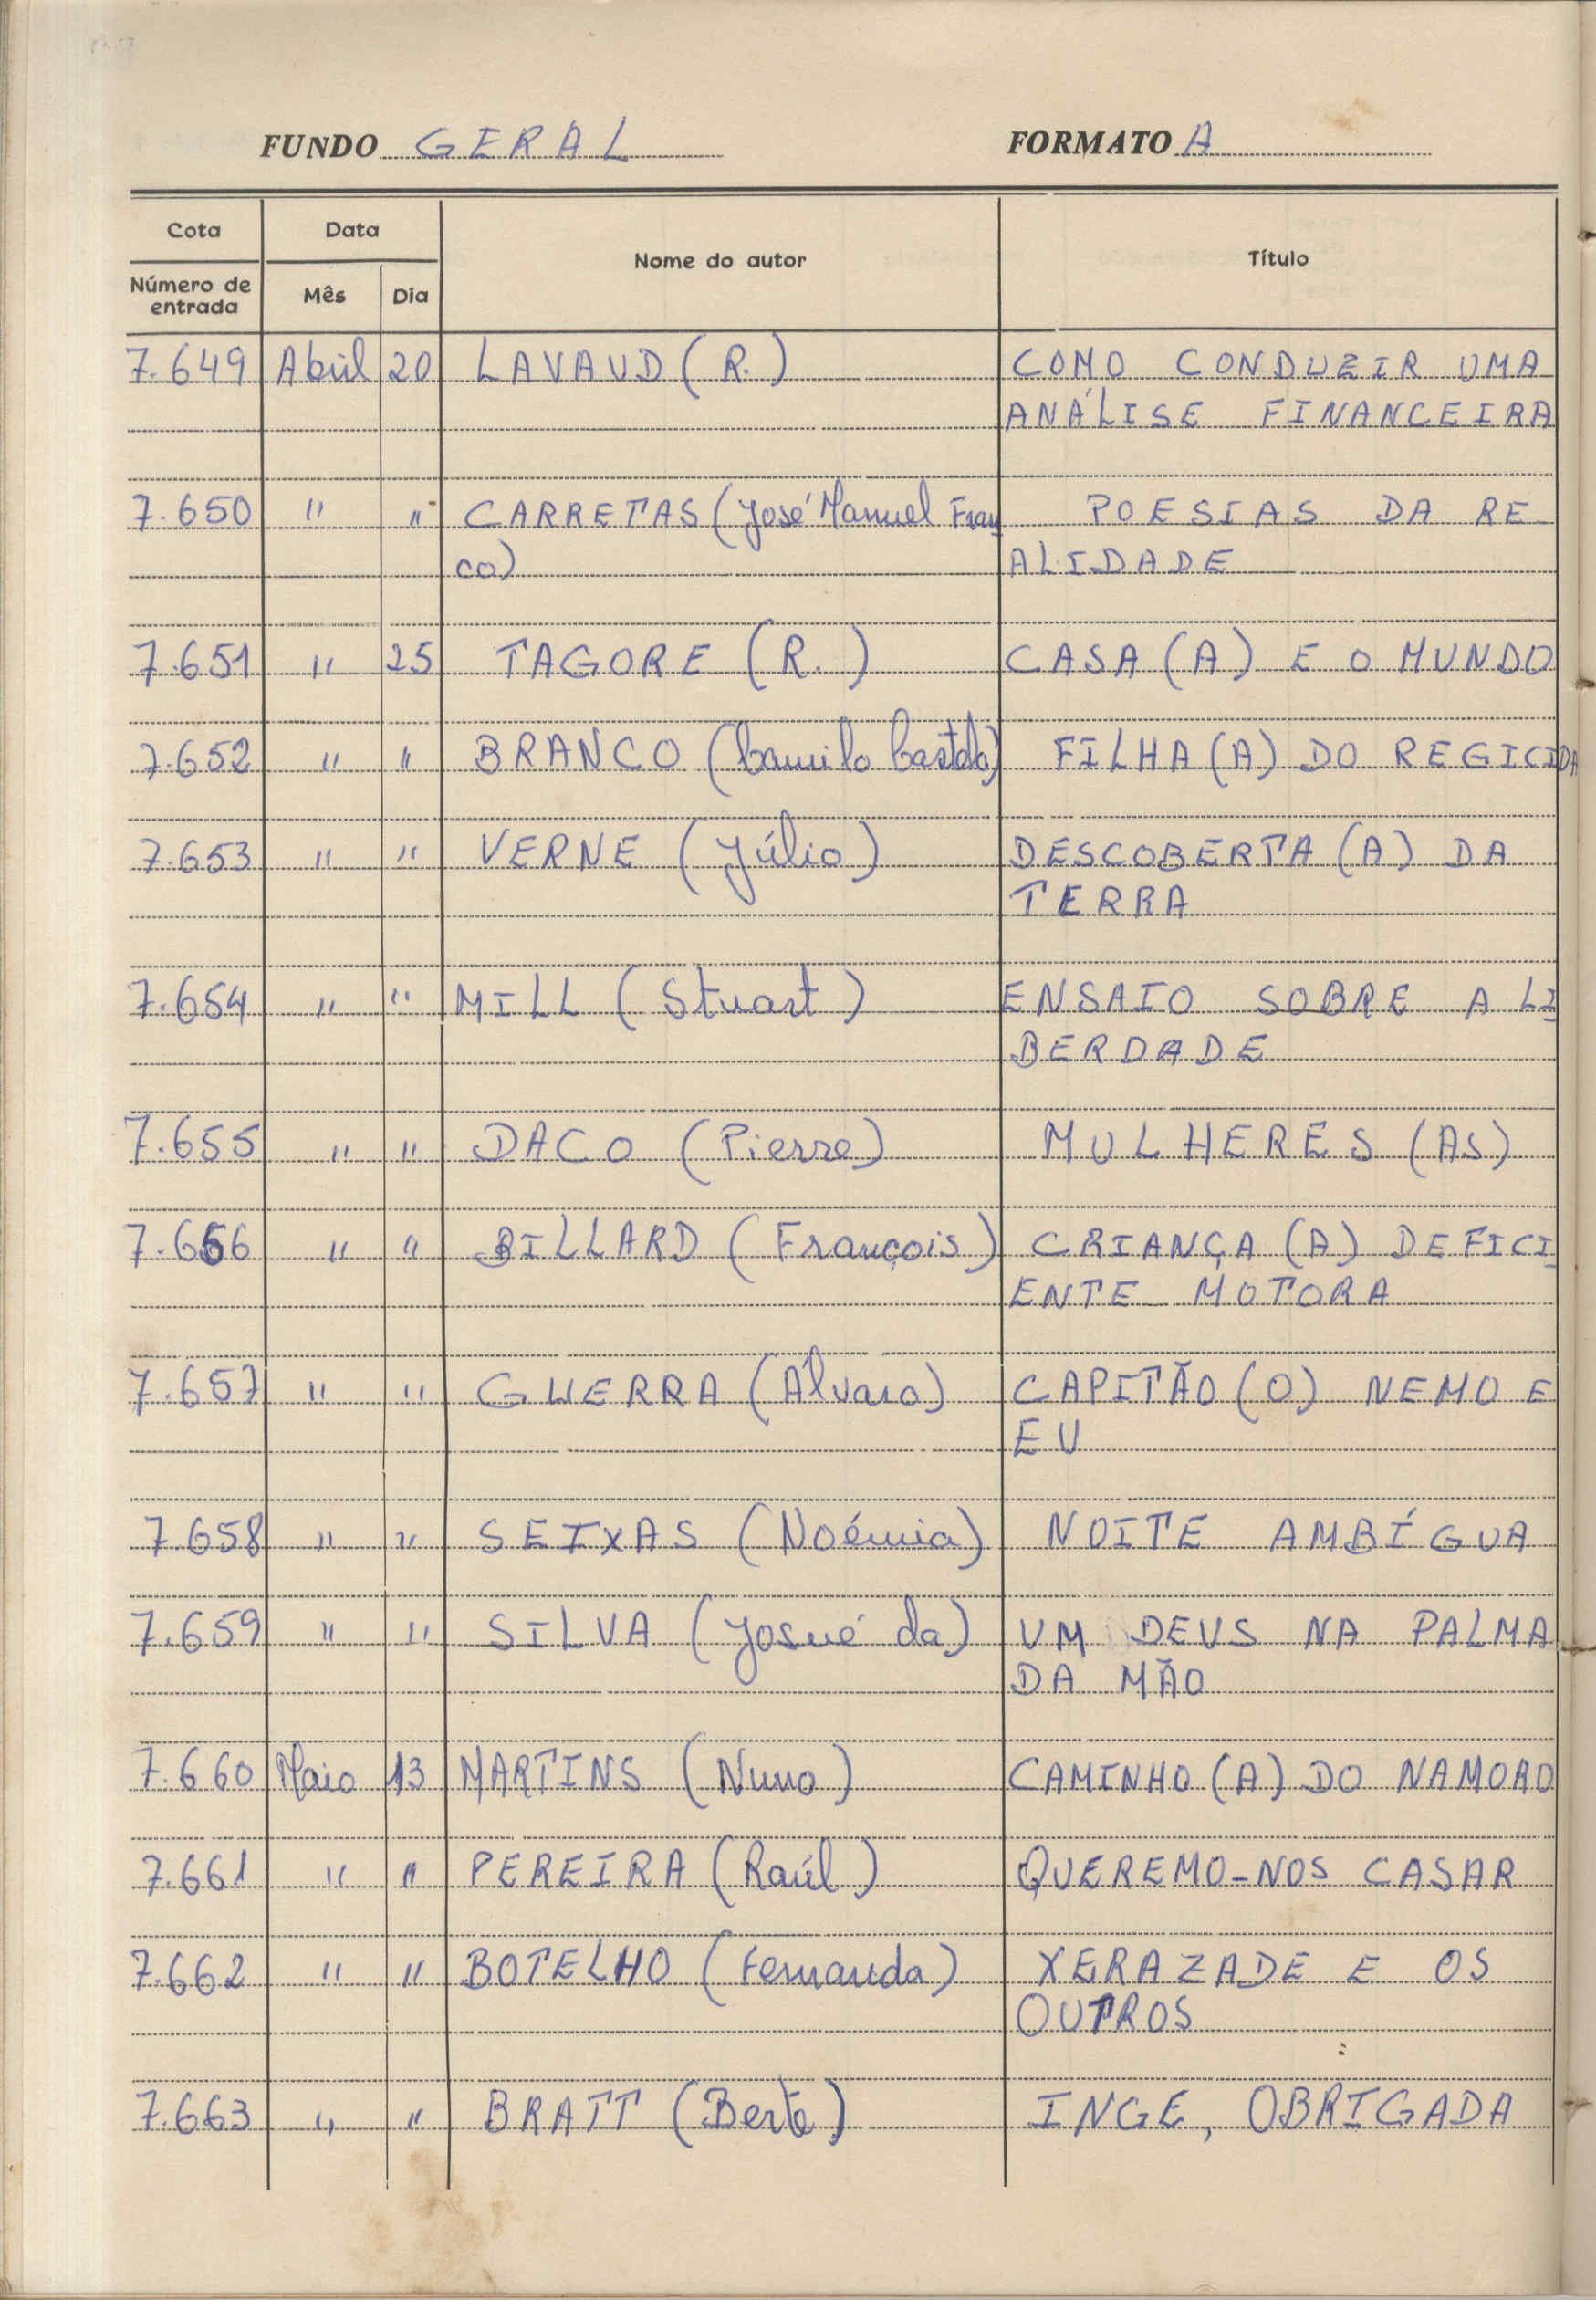 FUNDO GERAL FORMATO A
Cota Data Nome do autor Título
Número de entrada Mês Dia
7.649 Abril 20 LAVAUD (R.) COMO CONDUZIR UMA
ANÁLISE FINANCEIRA
7.650 " " CARRETAS (José Manuel Fran POESIAS DA RE
co) ALIDADE
7.651 " 25 TAGORE (R.) CASA (A) E O MUNDO
7.652 " " BRANCO (Camilo Castelo) FILHA (A) DO REGICIDA
7.653 " " VERNE (Júlio) DESCOBERTA (A) DA
TERRA
7.654 " " MILL (Stuart) ENSAIO SOBRE A LI
BERDADE
7.655 " " DACO (Pierre) MULHERES (AS)
7.656 " " BILLARD (François) CRIANÇA (A) DEFICI
ENTE MOTORA
7.657 " " GUERRA (Álvaro) CAPITÃO (O) NEMO E
EU
7.658 " " SEIXAS (Noémia) NOITE AMBÍGUA
7.659 " " SILVA (Josué da) UM DEUS NA PALMA
DA MÃO
7.660 Maio 13 MARTINS (Nuno) CAMINHO (A) DO NAMORO
7.661 " " PEREIRA (Raúl) QUEREMO-NOS CASAR
7.662 " " BOTELHO (Fernanda) XERAZADE E OS
OUTROS
7.663 " " BRATT (Berte) INGE, OBRIGADA